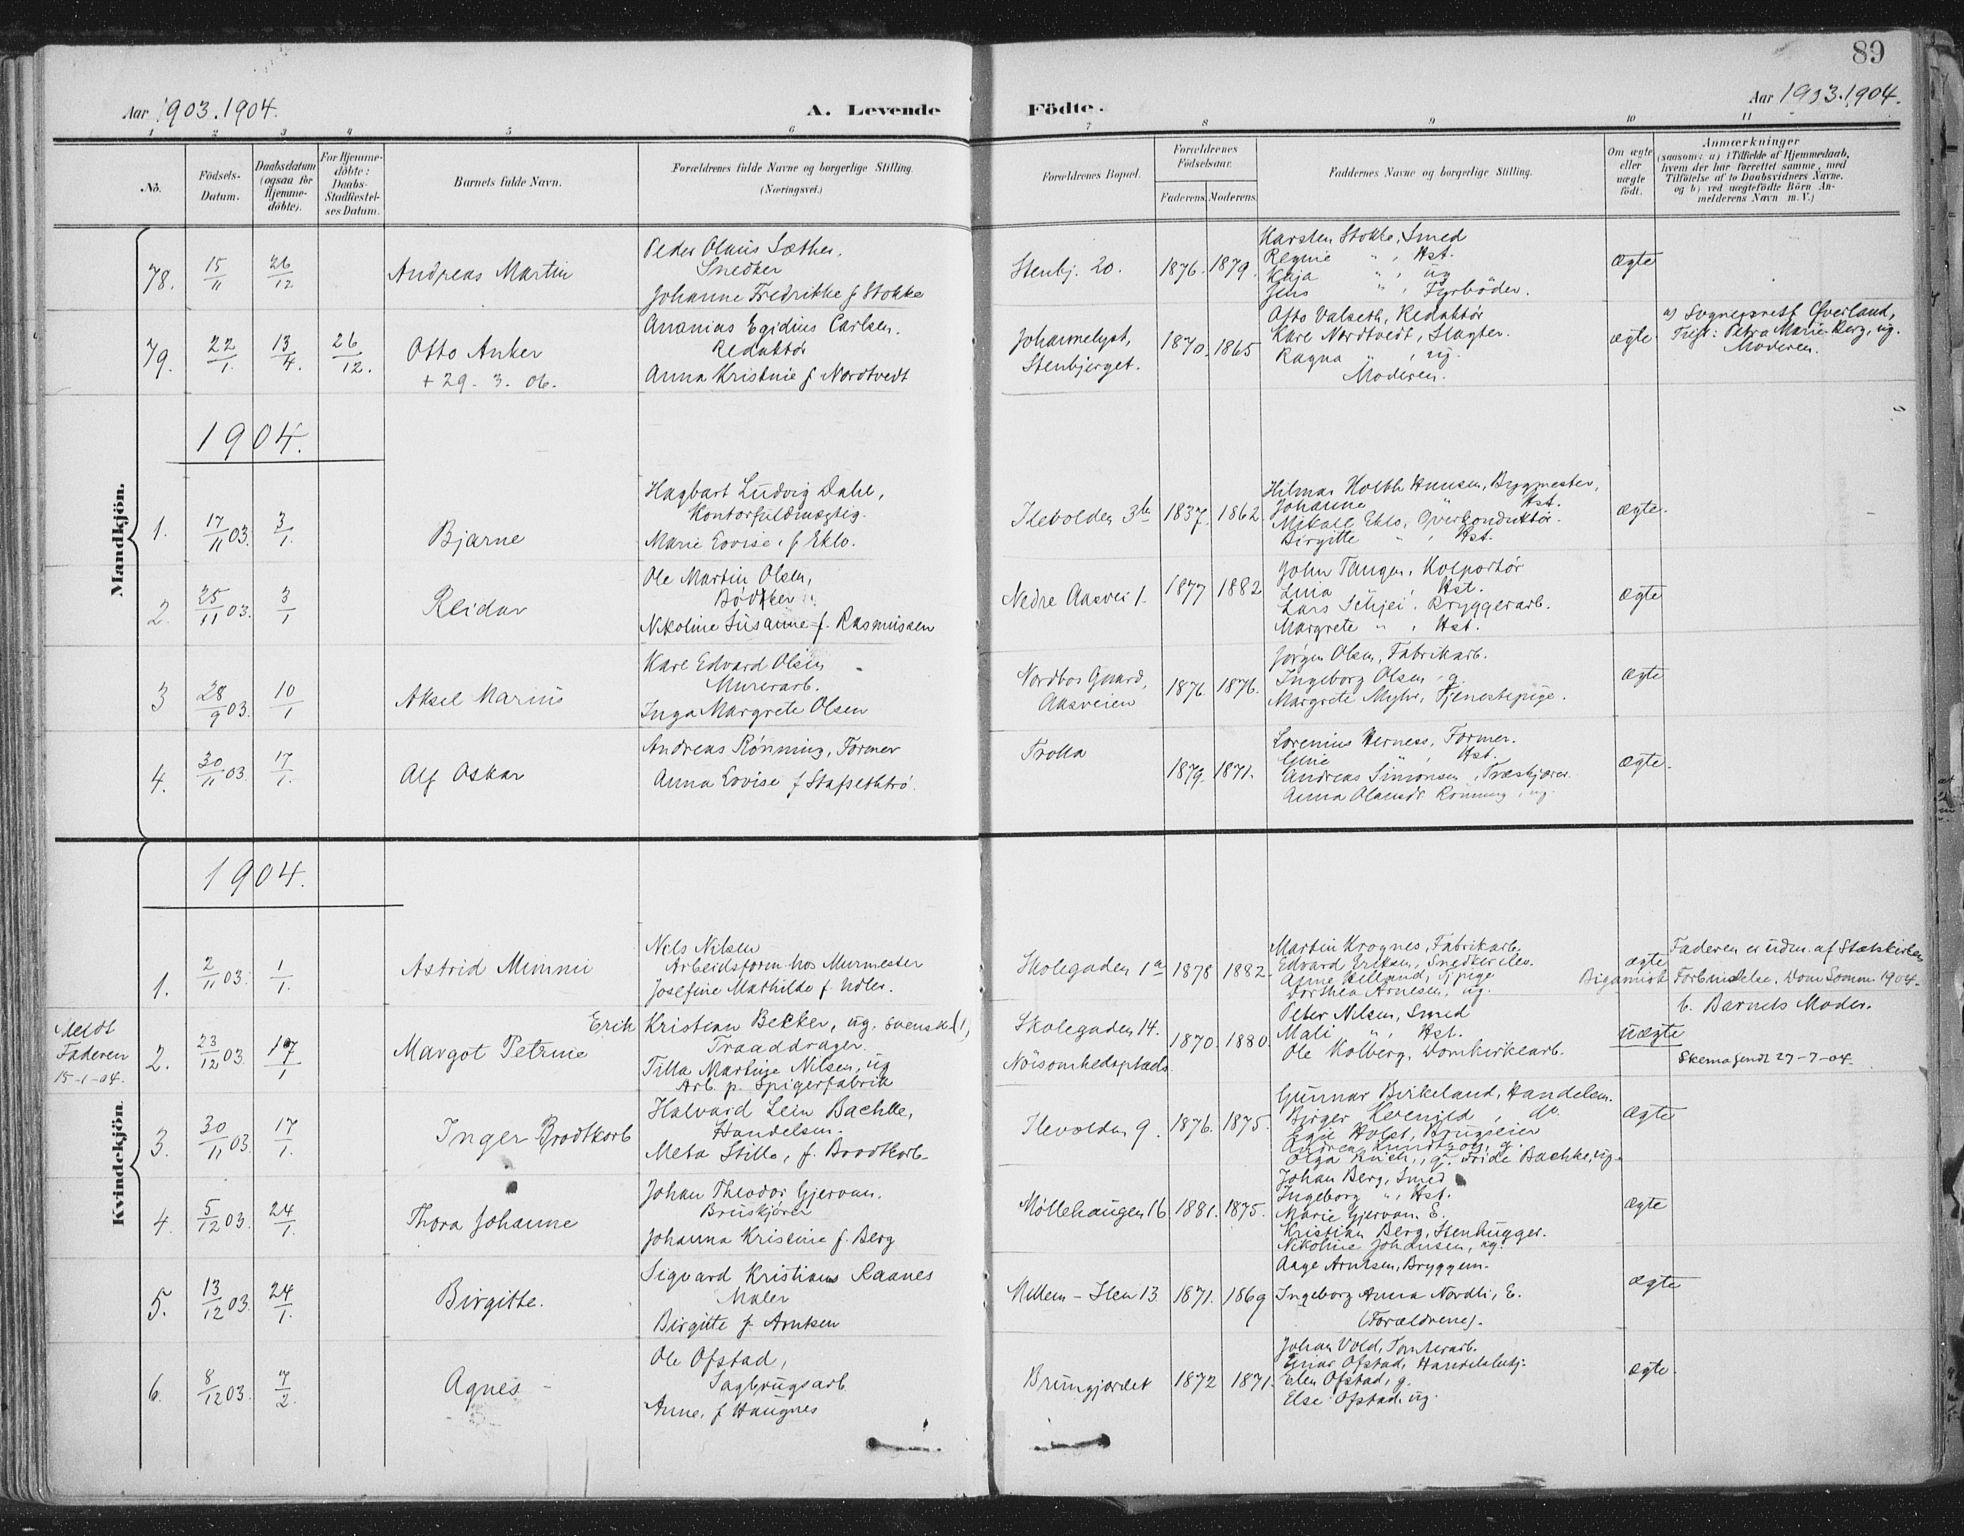 89
Aar 1903.1904.
A. Levende Födte.
Aar 1903.1904.
1 2 3 4 5 6 7 8 9 10 11
No.
Födsels-Datum.
Daabsdatum (ogsaa for Hjemme-döbte).
For Hjemme-döbte: Daabs-Stadfæstel-ses Datum.
Barnets fulde Navn.
Forældrenes fulde Navne og borgerlige Stilling.
(Næringsvei.)
Forældrenes Bopæl.
Forældrenes Födselsaar.
Faderens. Moderens.
Faddernes Navne og borgerlige Stilling.
Om ægte eller uægte födt.
Anmærkninger
(saasom: a) i Tilfælde af Hjemmedaab, hvem der har forrettet samme, med Tilföielse af to Daabsvidners Navne. og b) ved uægtefödte Börn An-melderens Navn m. V.)
Mandkjön.
78. 15/11 26/12 Andreas Martin
Peder Olaus Sæther,
Snedker
Johanne Fredrikke f Stokke
Stenbj. 20. 1876. 1879.
Karsten Stokke, Smed
Regine " , Hst.
Kaja " , ug
Jens " , Fyrbøder.
ægte
79. 22/1. 13/4. 26/12. Otto Anker
+ 29. 3. 06.
Ananias Egidius Carlsen.
Redaktør
Anna Kristine f Nordtvedt
Johannelyst,
Stenbjerget. 1870. 1865
Otto Valseth, Redaktør
Kare Nordtvedt, Slagter
Ragna " , ug.
Moderen.
ægte.
a) Sogneprest Överland,
Test: Petra Marie Berg, ug.
Moderen.
1904.
1. 17/11 03. 3/1. Bjarne
Hagbart Ludvig Dahl,
Kontorfuldmægtig.
Marie Lovise f Eklo.
Ilevolden 3b 1837. 1862.
Hilmar Holth Hansen, Bygmester,
Johanne " Hst.
Mikal Eklo, Överkonduktör.
Birgitte " , Hst.
ægte.
2. 25/11 03. 3/1 Reidar
Ole Martin Olsen,
Bödker
Nikoline Susanne f. Rasmussen
Nedre Aasvei 1. 1877 1882
John Tangen, Kolportør
Lina , Hst.
Lars Schjei, Bryggerarb.
Margrete " , Hst.
ægte
3 28/9 03. 10/1 Aksel Marius
Karl Edvard Olsen
Murerarb.
Inga Margrete Olsen
Nordbos Gaard,
Aasveien 1876 1876.
Jørgen Olsen, Fabrikarb.
Ingeborg Olsen, g.
Margrete Myhr, Tjenestepige.
ægte
4. 30/11 03. 17/1. Alf Oskar
Andreas Rönning, Former
Anna Lovise f Stafsethtrö.
Trolla 1879. 1871.
Lorenius Herness, Former.
Gine " , Hst.
Andreas Simonsen, Træskjærer.
Anna Olansdr Rönning, ug.
ægte.
1904.
Kvindekjön.
1. 2/11 03. 1/1. Astrid Mimmi
Nils Nilsen
Arbeidsform. hos Murmester
Josefine Mathilde f. Udler.
Skolegaden 1a 1878 1882.
Martin Krognes, Fabrikarb.
Edvard Eriksen, Snedkerelev.
Anne Helland, Tjpige
Dorthea Arnesen, ug.
ægte
Bigamist
Faderen er udm. af Statskirken
Forbindelse, Dom Somm. 1904.
b. Barnets Moder.
Meldt
Faderen
15-1-04.
2. 23/12 03. 17/1 Margot Petrine
Erik Kristian Becker, ug. svensk (1)
Traaddrager.
Tilla Martine Nilsen, ug
Arb. p. Spigerfabrik
Skolegaden 14.
Nöisomhedsplads. 1870. 1880.
Peter Nilsen, Smed
Mali " , Hst.
Ole Kolberg, Domkirkearb.
uægte
Skema sendt 27-7-04.
3. 30/11 03. 17/1. Inger Brodtkorb
Halvard Lein Bachke,
Handelsm.
Meta Stille, f. Brodtkorb
Ilevolden 9. 1876. 1875.
Gunnar Birkeland, Handelsm.
Birger Levenild, do.
Egil Holst, Brugseier
Andrea Lundtzon, g.
Olga Buch, g. Fride Bachke, ug.
ægte
4. 5/12 03. 24/1. Thora Johanne
Johan Theodor Gjervan.
Bruskjörer
Johanna Kristine f. Berg
Möllehaugen 16. 1881. 1875.
Johan Berg, Smed
Ingeborg " , Hst.
Marie Gjervan. E.
Kristian Berg, Stenhugger.
Nikoline Johansen, ug.
ægte
5. 13/12 03. 24/1. Birgitte.
Sigvard Kristians Raanes
Maler
Birgitte f. Arntsen
Mellem-Ilen 13 1871. 1869
Aage Arntsen, Bryggem.
Ingeborg Anna Nordli, E.
(Forældrene).
ægte
6. 8/12 03. 7/2. Agnes
Ole Ofstad,
Sagbrugsarb
Anne, f Haugnes
Brungjordet 1872 1871.
Johan Vold, Tomterarb.
Einar Ofstad, Handelsbetj.
Elen Ofstad, g.
Else Ofstad, ug.
ægte.